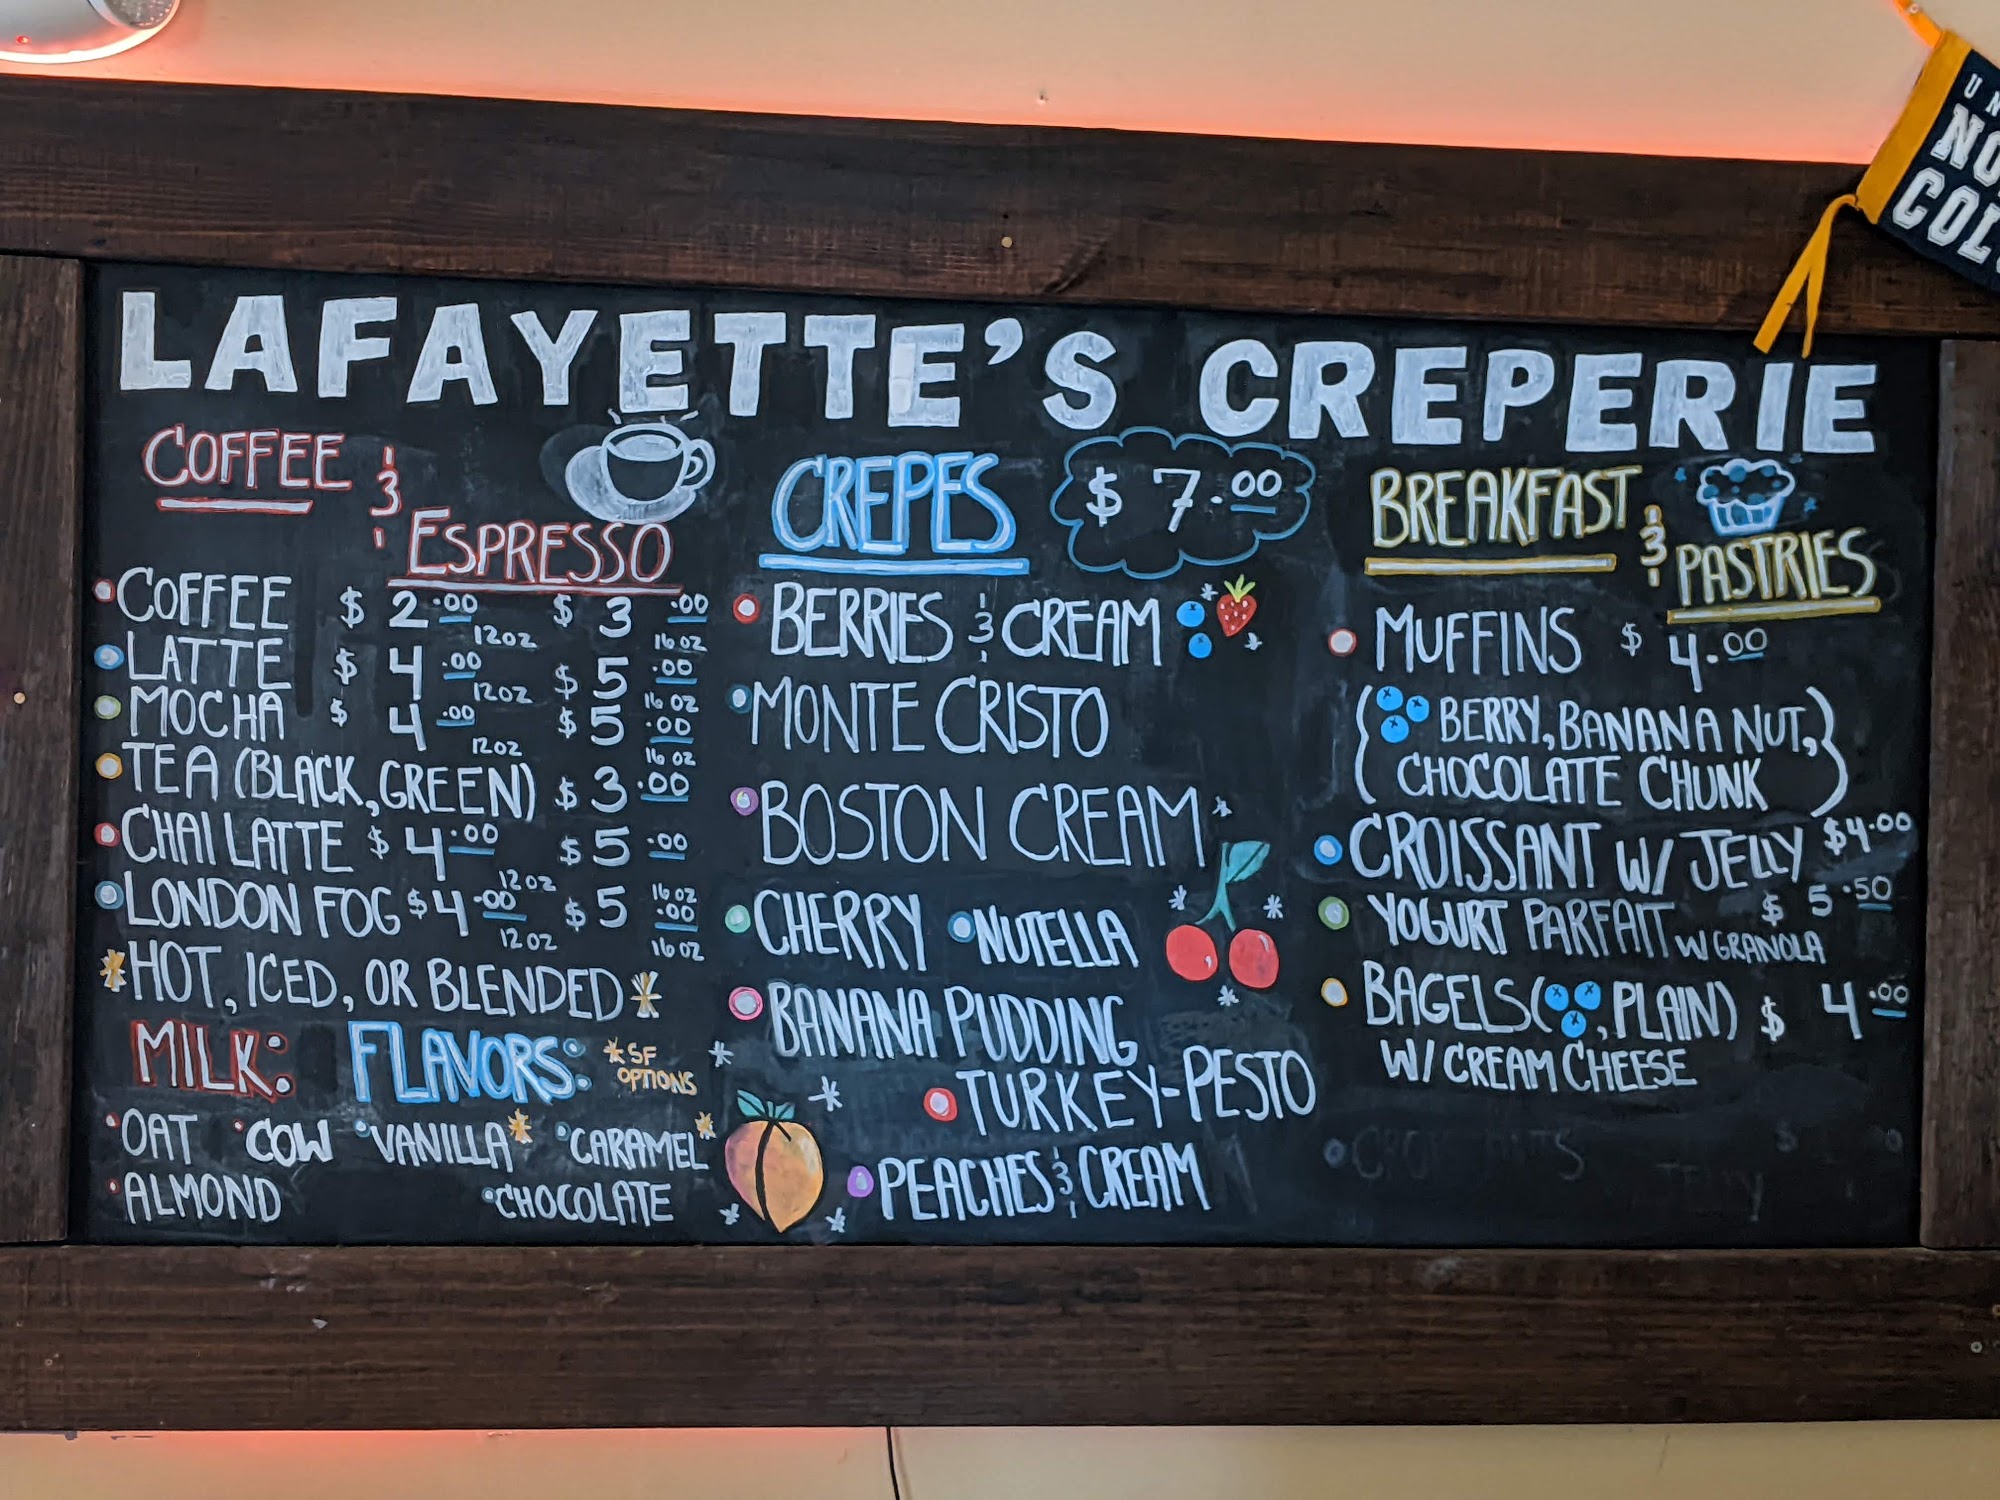 UN
NO
COL
LAFAYETTE'S CREPERIE
COFFEE &
ESPRESSO
COFFEE $2.00 12OZ $3.00 16OZ
LATTE $4.00 12OZ $5.00 16OZ
MOCHA $4.00 12OZ $5.00 16OZ
TEA (BLACK, GREEN) $3.00
CHAI LATTE $4.00 12OZ $5.00 16OZ
LONDON FOG $4.00 12OZ $5.00 16OZ
*HOT, ICED, OR BLENDED*
MILK:
OAT COW
ALMOND
FLAVORS: *SF
OPTIONS
VANILLA* CARAMEL*
CHOCOLATE
CREPES $7.00
BERRIES & CREAM
MONTE CRISTO
BOSTON CREAM
CHERRY NUTELLA
BANANA PUDDING
TURKEY-PESTO
PEACHES & CREAM
BREAKFAST &
PASTRIES
MUFFINS $4.00
( BERRY, BANANA NUT,
CHOCOLATE CHUNK)
CROISSANT W/ JELLY $4.00
YOGURT PARFAIT W GRANOLA $5.50
BAGELS ( , PLAIN) $4.00
W/ CREAM CHEESE